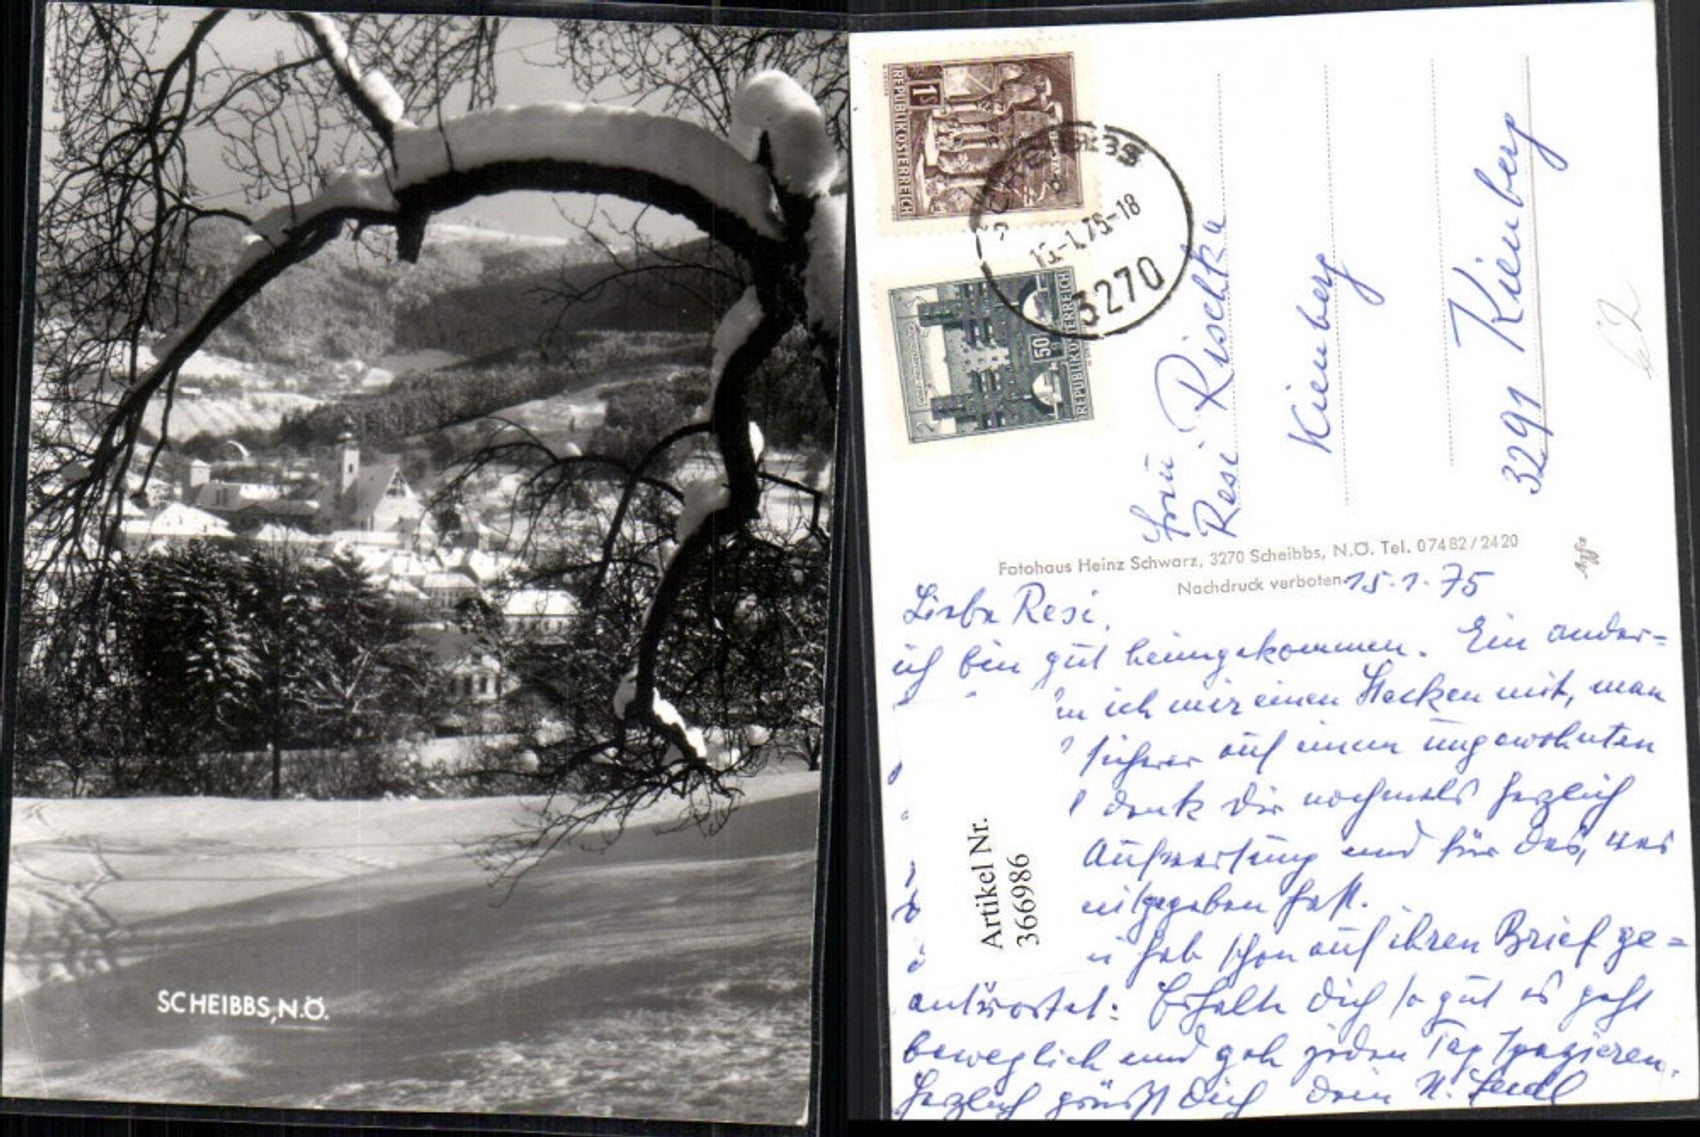 SCHEIBBS, N.Ö.
REPUBLIK ÖSTERREICH
1S
50
REPUBLIK ÖSTERREICH
15.-1.75-18
3270
Frau
Resi Rischka
Kienberg
3291 Kienberg
Fotohaus Heinz Schwarz, 3270 Scheibbs, N.Ö. Tel. 07482/2420
Nachdruck verboten
Agfa
15.1.75
Liebe Resi,
ich bin gut heimgekommen. Ein ander=
ich mir einen Stecken mit, man
sicherer auf einem ungewohnten
dank Dir nochmals herzlich
Aufwartung und für das, was
mitgegeben hast.
hab schon auf ihren Brief ge=
antwortet. Erhalte Dich so gut es geht
beweglich und geh jeden Tag spazieren.
Herzlich grüsst Dich Dein N.
Artikel Nr.
366986